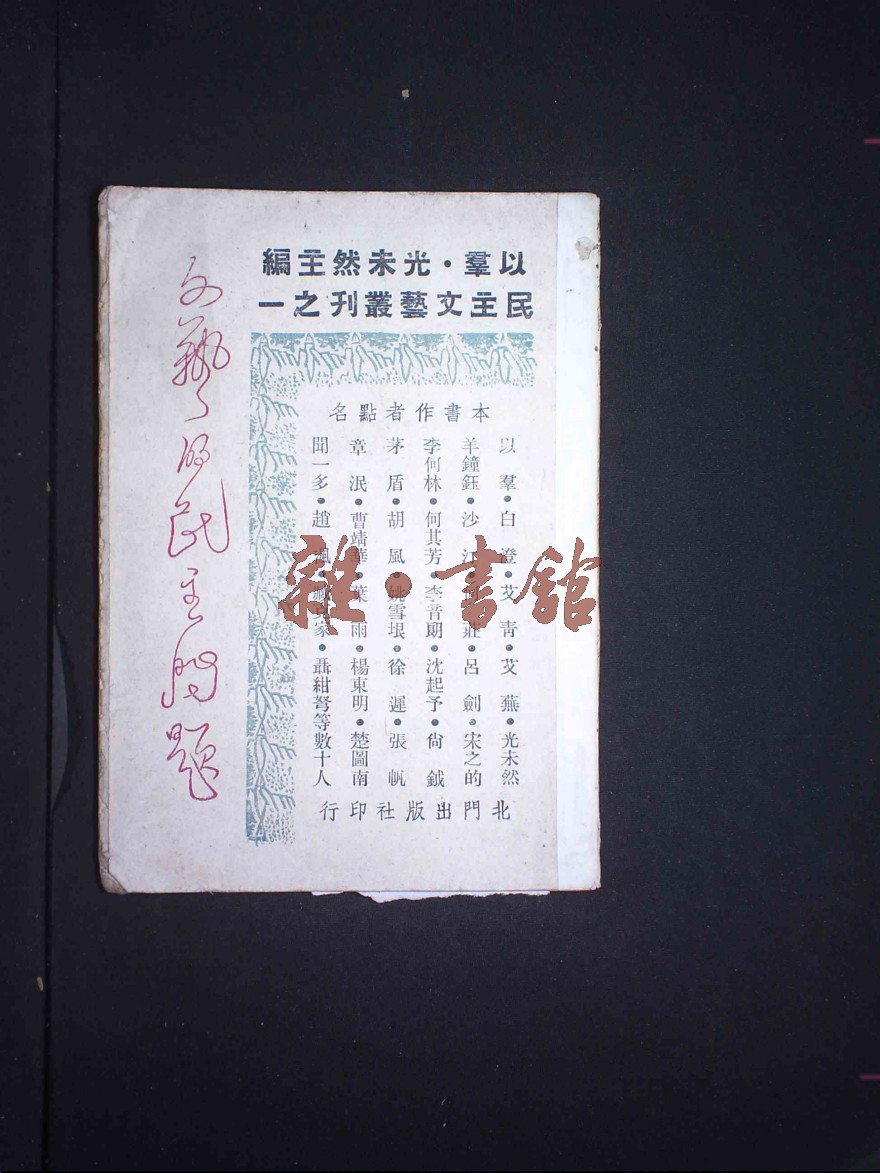 以羣・光未然主編
民主文藝叢刊之一
本書作者點名
以羣●白澄●艾青●艾蕪●光未然
羊鐘鈺●沙汀●莊●呂劍●宋之的
李何林●何其芳●李音朗●沈起予●尙鉞
茅盾●胡風●姚雪垠●徐遲●張帆
章泯●曹靖華●葉雨●楊東明●楚圖南
聞一多●趙渢●臧克家●聶紺弩等數十人
北門出版社印行
文藝的民主問題
雜・書館